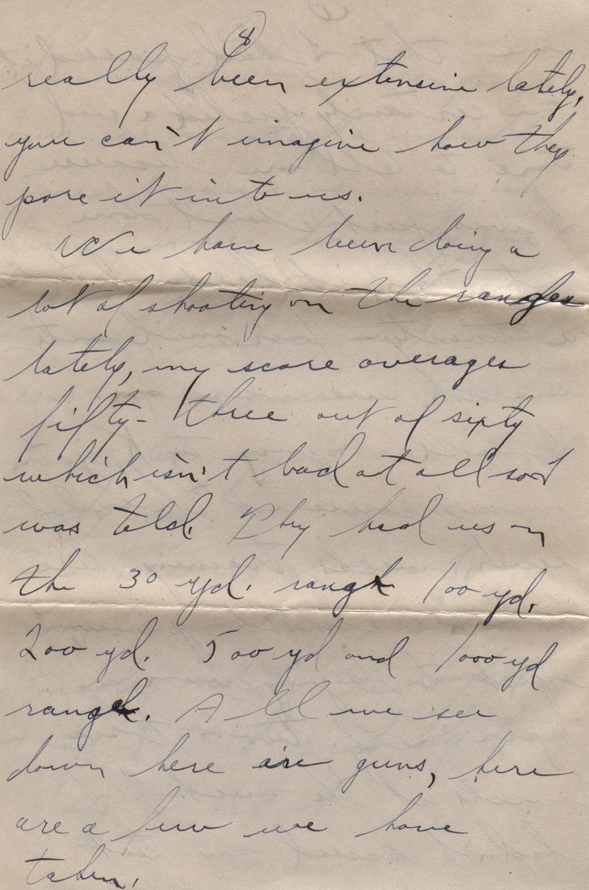 8
really been extensive lately,
you can't imagine how they
pore it into us.
We have been doing a
lot of shooting on the ranges
lately, my score averages
fifty-three out of sixty
which isn't bad at all so I
was told. They had us on
the 30 yd. range 100 yd.
200 yd. 500 yd and 1000 yd
range. All we see
down here are guns, here
are a few we have
taken.